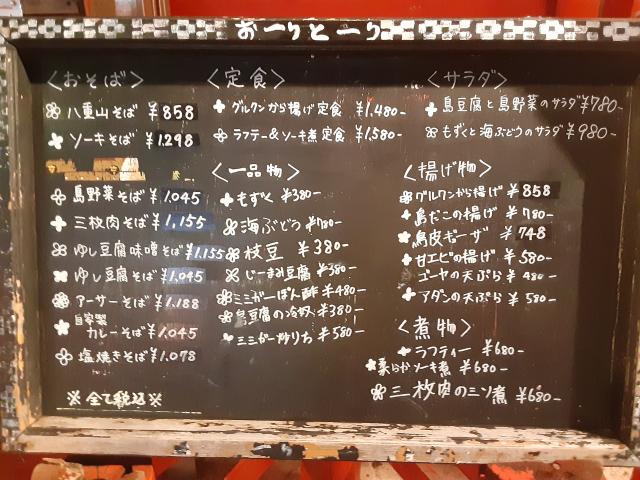 おーりとーり
〈おそば〉
八重山そば ¥858
ソーキそば ¥1.298
島野菜そば ¥1.045
三枚肉そば ¥1,155
ゆし豆腐味噌そば ¥1.155
ゆし豆腐そば ¥1.045
アーサーそば ¥1.188
自家製
カレーそば ¥1.045
塩焼きそば ¥1.078
※全て税込※
〈定食〉
グルクンから揚げ定食 ¥1,480-
ラフテー&ソーキ煮定食 ¥1,580-
〈一品物〉
もずく ¥380-
海ぶどう ¥780-
枝豆 ¥380-
じーまみ豆腐 ¥380-
ミミガーぽん酢 ¥480-
島豆腐の冷奴 ¥380-
ミミガー炒りち ¥580-
〈サラダ〉
島豆腐と島野菜のサラダ ¥780-
もずくと海ぶどうのサラダ ¥980-
〈揚げ物〉
グルクンから揚げ ¥858
島だこの揚げ ¥780-
鳥皮ギョーザ ¥748
甘エビの揚げ ¥580-
ゴーヤの天ぷら ¥480-
アダンの天ぷら ¥580-
〈煮物〉
ラフティー ¥680-
柔らかソーキ煮 ¥680-
三枚肉のミソ煮 ¥680-